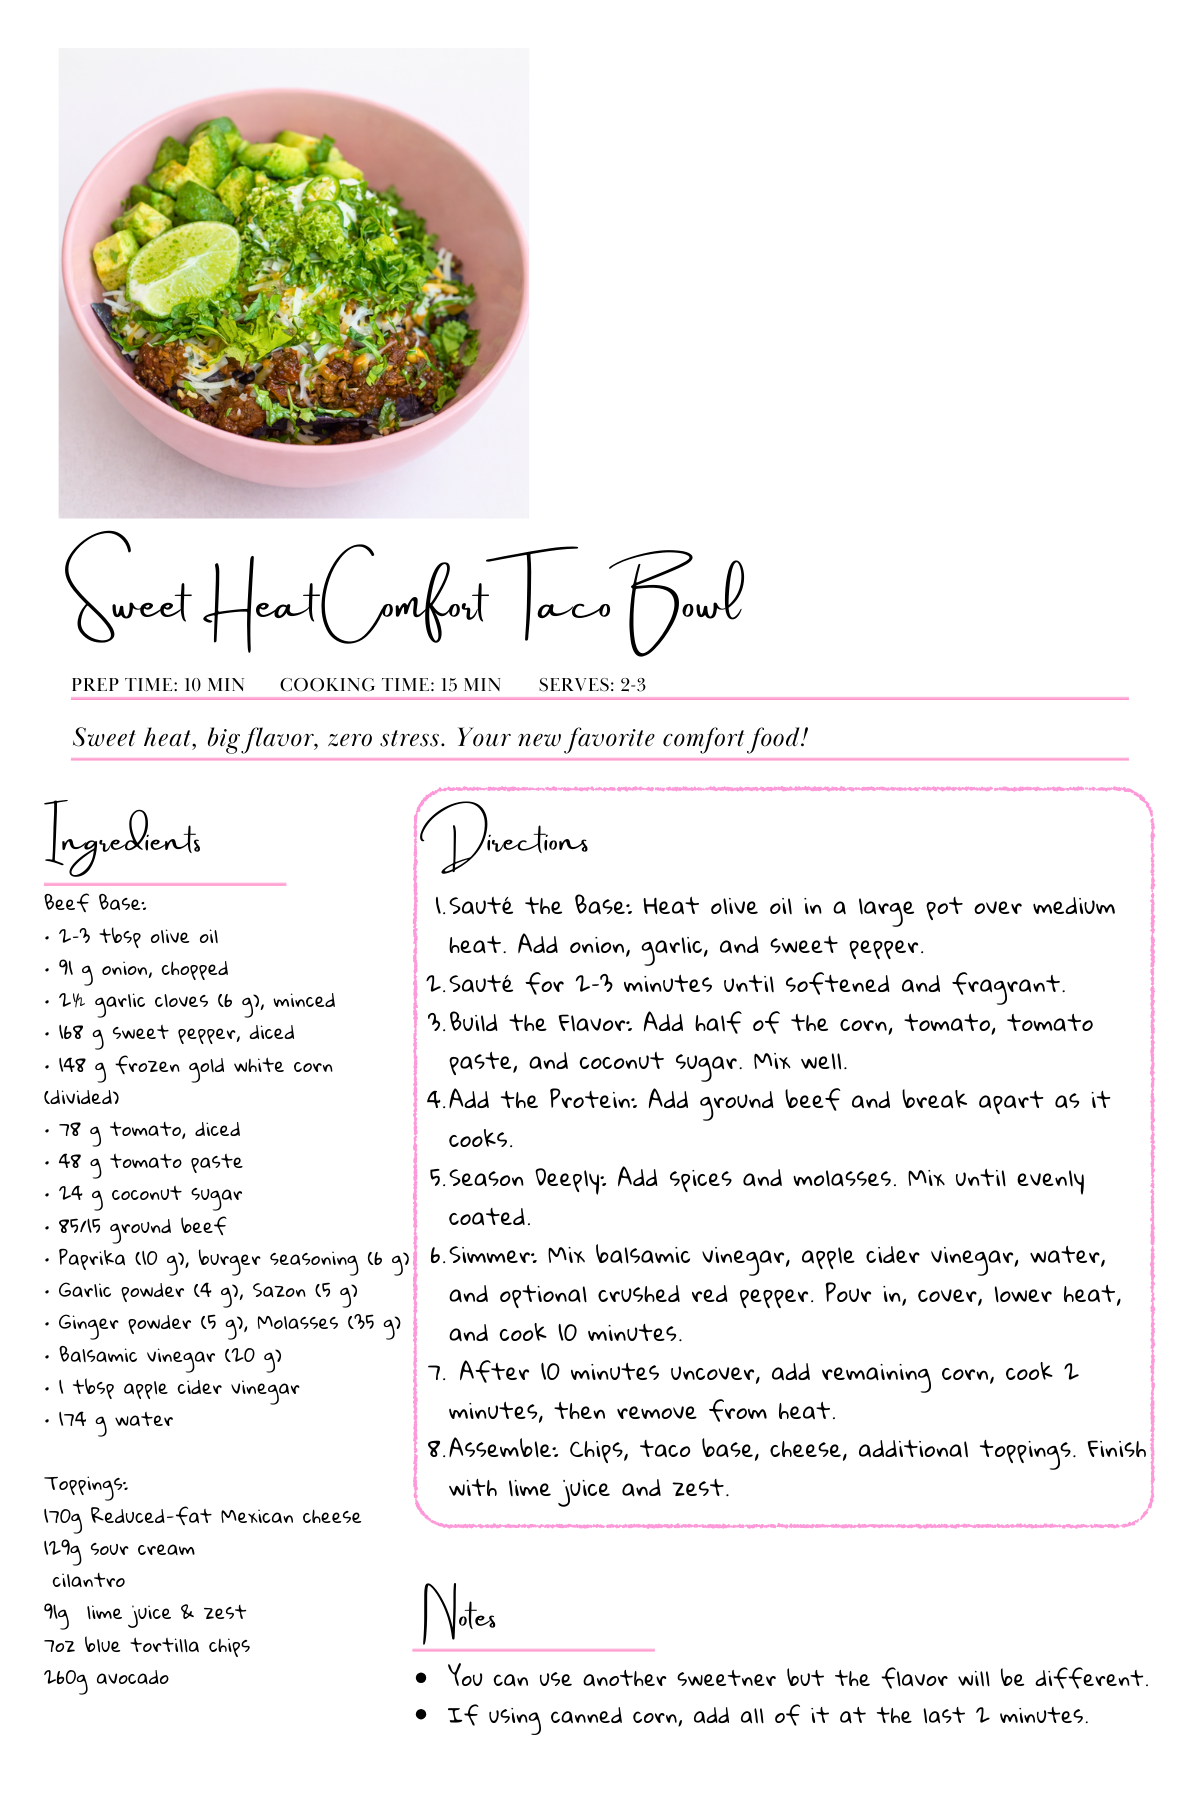 Sweet Heat Comfort Taco Bowl
PREP TIME: 10 MIN COOKING TIME: 15 MIN SERVES: 2-3
Sweet heat, big flavor, zero stress. Your new favorite comfort food!
Ingredients
Beef Base:
• 2-3 tbsp olive oil
• 91 g onion, chopped
• 2½ garlic cloves (6 g), minced
• 168 g sweet pepper, diced
• 148 g frozen gold white corn
(divided)
• 78 g tomato, diced
• 48 g tomato paste
• 24 g coconut sugar
• 85/15 ground beef
• Paprika (10 g), burger seasoning (6 g)
• Garlic powder (4 g), Sazon (5 g)
• Ginger powder (5 g), Molasses (35 g)
• Balsamic vinegar (20 g)
• 1 tbsp apple cider vinegar
• 174 g water
Toppings:
170g Reduced-fat Mexican cheese
129g sour cream
cilantro
91g lime juice & zest
7oz blue tortilla chips
260g avocado
Directions
1. Sauté the Base: Heat olive oil in a large pot over medium
heat. Add onion, garlic, and sweet pepper.
2. Sauté for 2-3 minutes until softened and fragrant.
3. Build the Flavor: Add half of the corn, tomato, tomato
paste, and coconut sugar. Mix well.
4. Add the Protein: Add ground beef and break apart as it
cooks.
5. Season Deeply: Add spices and molasses. Mix until evenly
coated.
6. Simmer: Mix balsamic vinegar, apple cider vinegar, water,
and optional crushed red pepper. Pour in, cover, lower heat,
and cook 10 minutes.
7. After 10 minutes uncover, add remaining corn, cook 2
minutes, then remove from heat.
8. Assemble: Chips, taco base, cheese, additional toppings. Finish
with lime juice and zest.
Notes
• You can use another sweetner but the flavor will be different.
• If using canned corn, add all of it at the last 2 minutes.